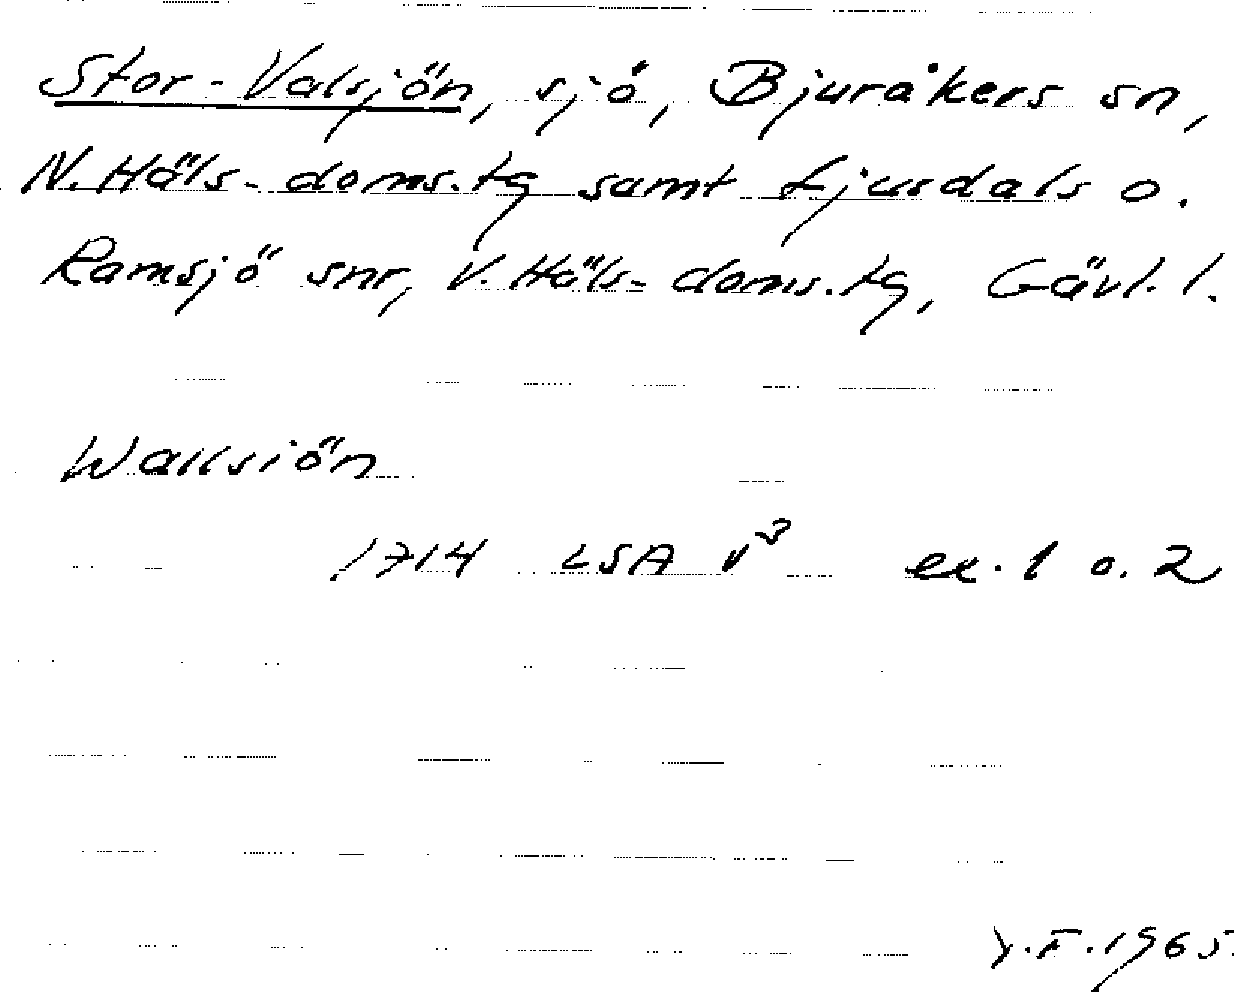 Stor-Valsjön, sjö, Bjuråkers sn,
N. Häls. doms.tg samt Ljusdals o.
Ramsjö snr, V. Häls. doms.tg, Gävl. l.
Wallsiön
1714 LSA V³ ex. 1 o. 2
1965.